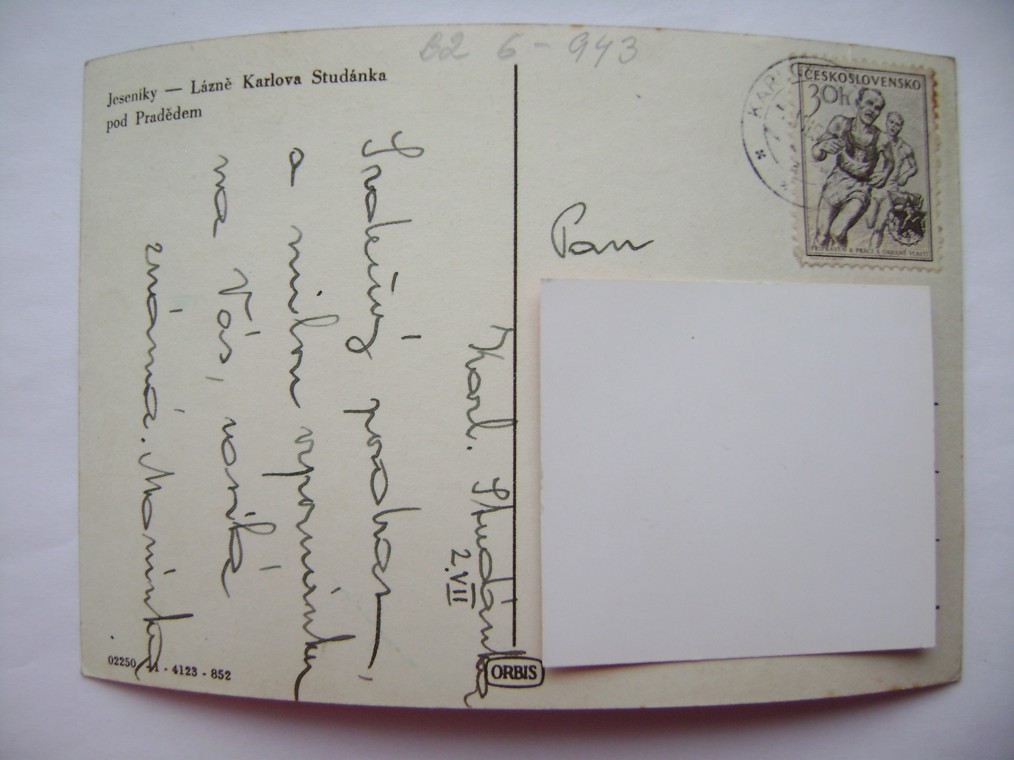 B2 6-943
Jeseníky — Lázně Karlova Studánka
pod Pradědem
ČESKOSLOVENSKO
30h
KARL
Pan
Karl. Studánka
2.VII
Srdečný pozdrav
a milou vzpomínku
na Vás,
známá. Mařinka
02250 4123 - 852
ORBIS